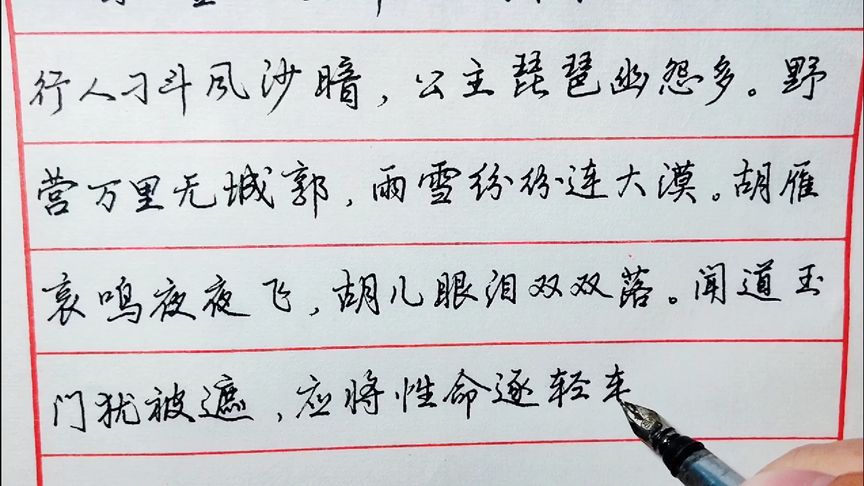 行人刁斗风沙暗，公主琵琶幽怨多。野
营万里无城郭，雨雪纷纷连大漠。胡雁
哀鸣夜夜飞，胡儿眼泪双双落。闻道玉
门犹被遮，应将性命逐轻车